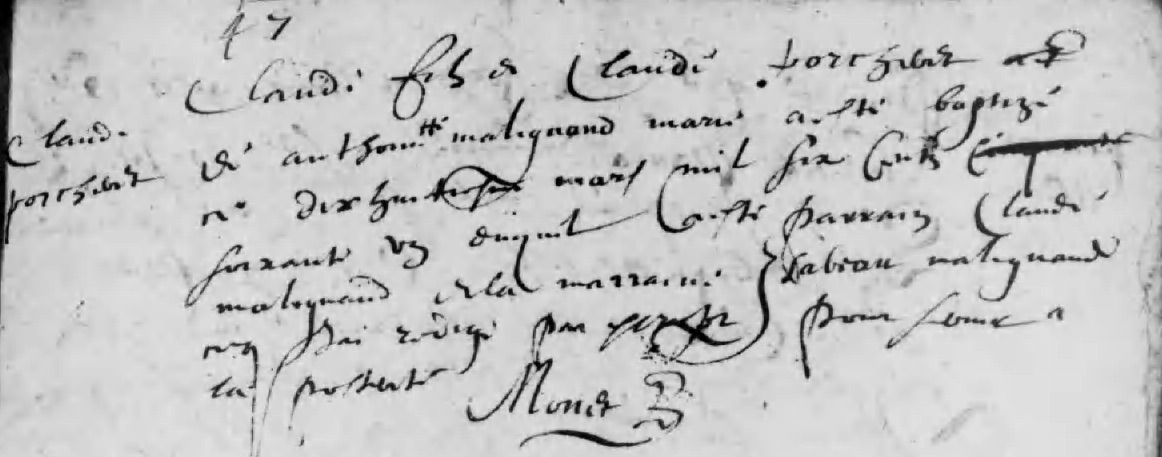 47
Claude
porcheret
Claude filz de Claude porcheret et
de anthoin^tte malignand marie a esté baptizé
ce dixhuitiesme mars mil six centz
soixante un duquel a esté parrain Claude
malignand et la marraine Isabeau malignand
que j'ai redigé par escript pour servir a
la posterité
Monet